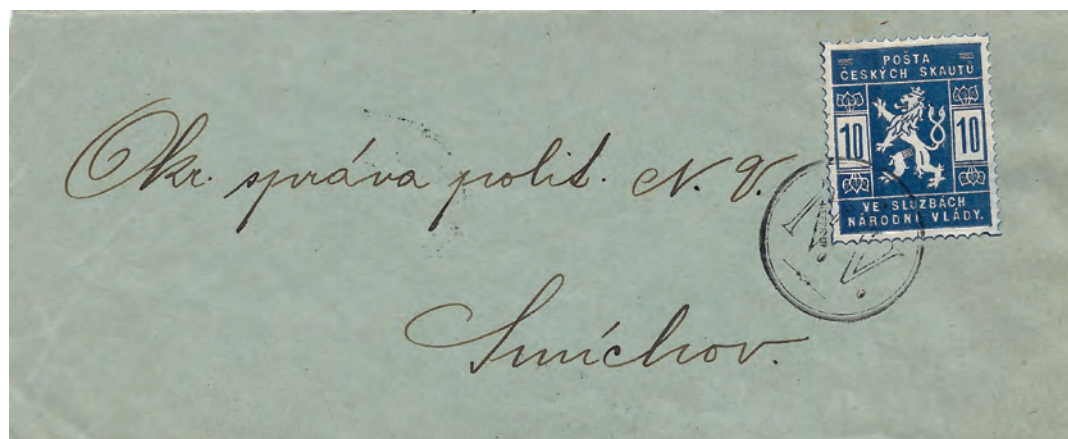 POŠTA
ČESKÝCH SKAUTŮ
10 10
VE SLUŽBÁCH
NÁRODNÍ VLÁDY.
Okr. správa polit. N. V.
N.V.
Smíchov.